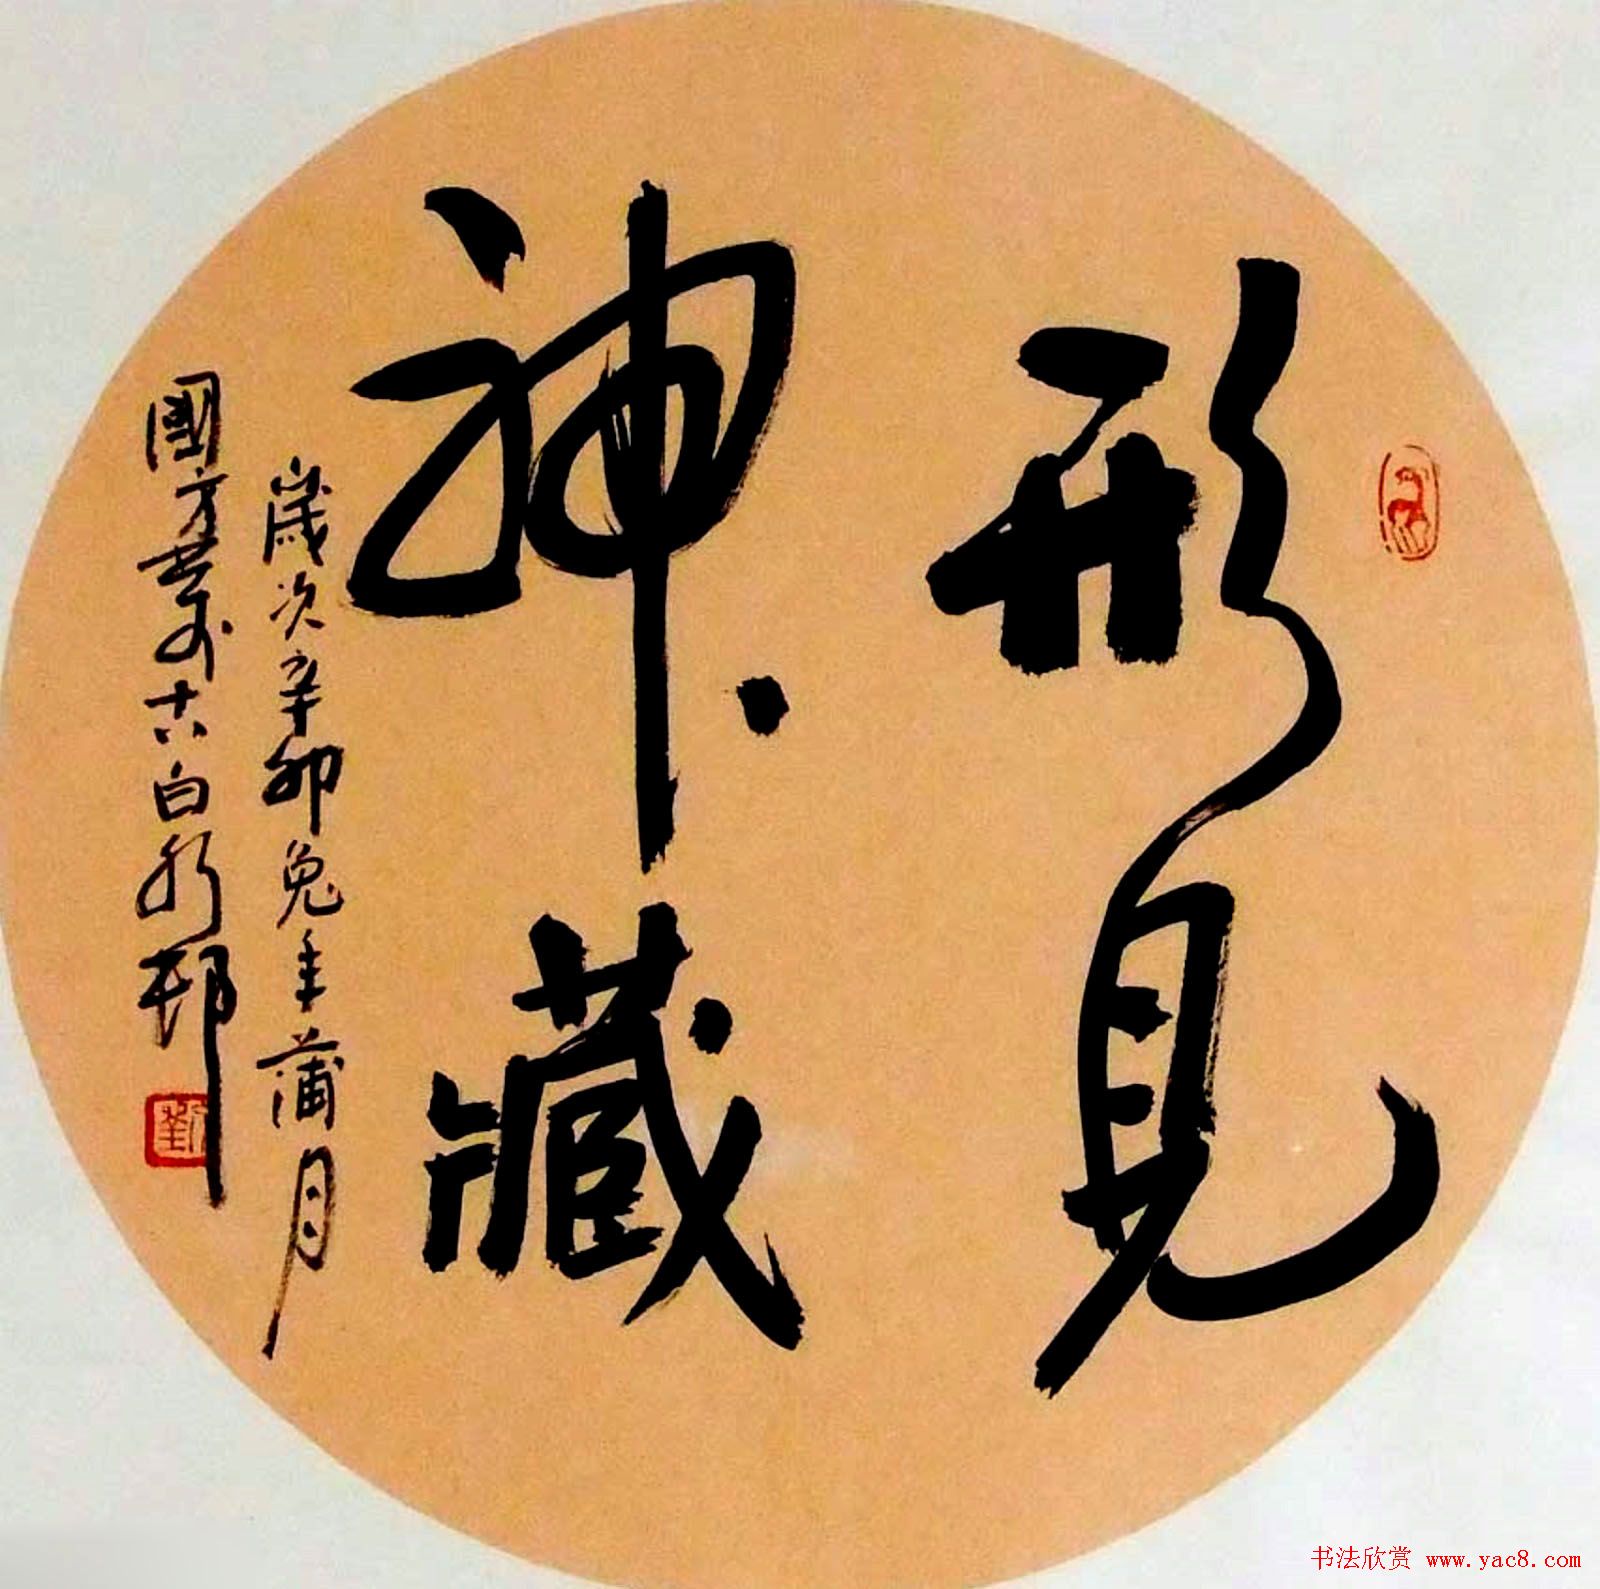 形見
神藏
歲次辛卯兔年蒲月
國方書於古白水邨
劉
书法欣赏 www.yac8.com